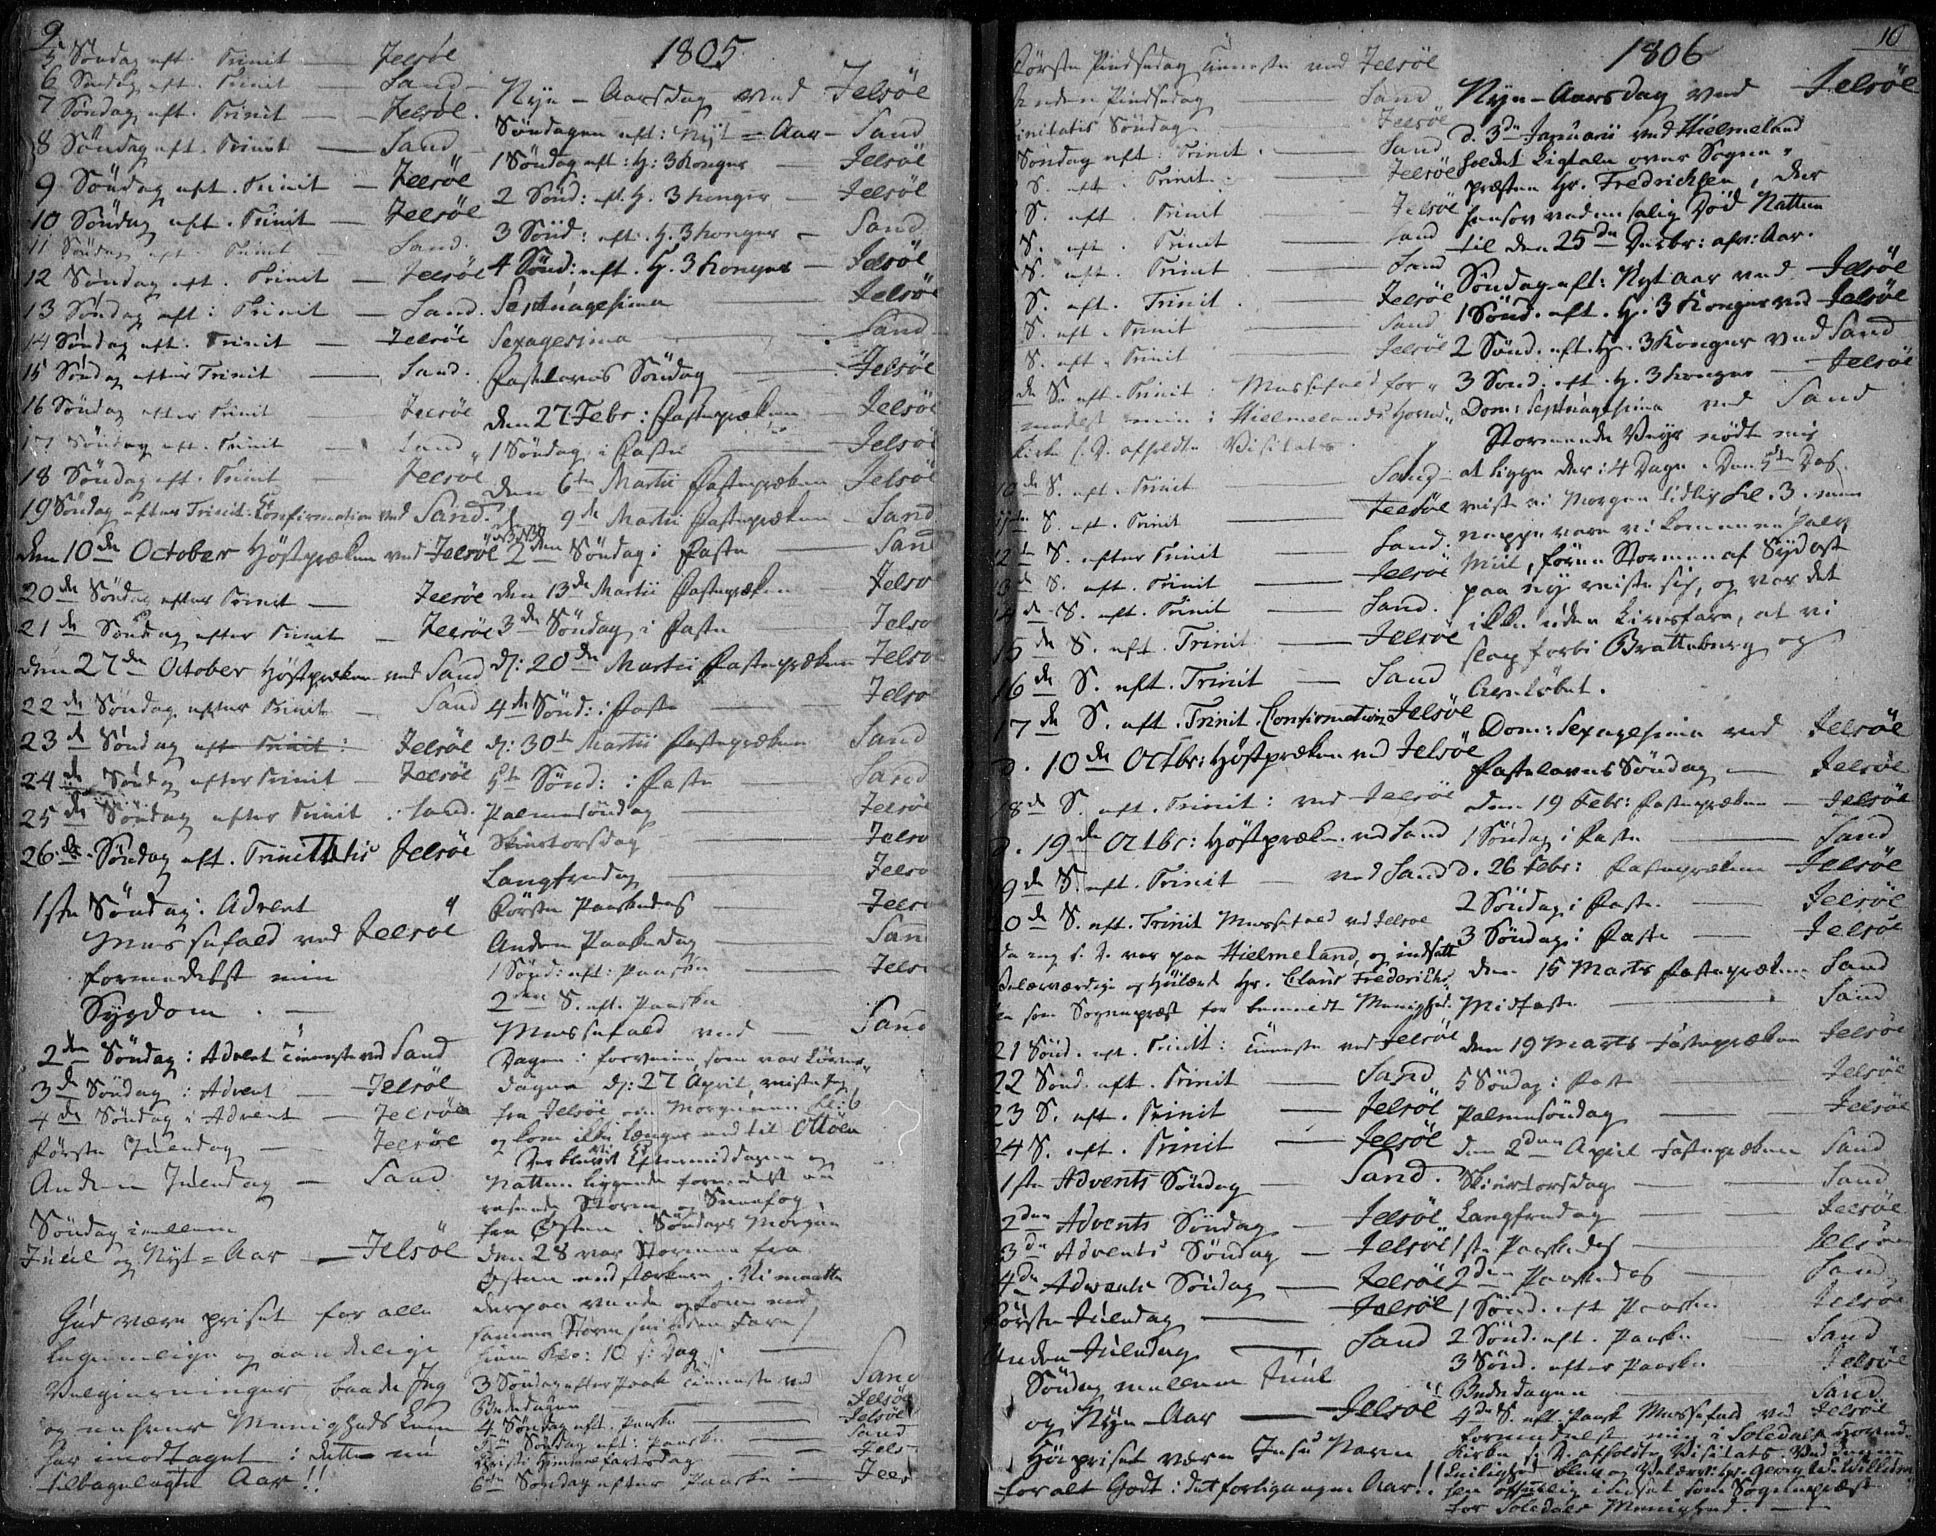 9.
5 Søndag eft. Trinit — Jelsöe
6 Søndag eft. Trinit — Sand
7 Søndag eft. Trinit — Jelsöe.
8 Søndag eft. Trinit — Sand
9 Søndag eft. Trinit — Jelsöe
10 Søndag eft. Trinit — Jelsöe
11 Søndag eft. Trinit — Sand.
12 Søndag eft. Trinit — Jelsöe
13 Søndag eft: Trinit — Sand.
14 Søndag eft: Trinit — Jelsöe
15 Søndag efter Trinit — Sand.
16 Søndag efter Trinit — Jelsöe
17 Søndag eft. Trinit — Sand
18 Søndag eft. Trinit — Jelsöe
19 Søndag efter Trinit: Confirmation ved Sand.
Den 10de October Høstpræken ved Jelsöe
20de Søndag efter Trinit — Jelsöe
21de Søndag efter Trinit — Jelsöe
den 27de October Høstpræken ved Sand
22de Søndag efter Trinit — Sand
23de Søndag eft Trinit: Jelsöe
24de Søndag efter Trinit — Jelsöe
25de Søndag efter Trinit . Sand.
26.de Søndag eft. Trinittatis Jelsöe
1ste Søndag: Advent
Messefald ved Jelsöe
formedelst min
Sygdom. —
2den Søndag: Advent Tieneste ved Sand
3de Søndag i Advent — Jelsöe
4de Søndag i Advent — Jelsöe
Første Juledag — Jelsöe
Anden Juledag — Sand
Søndag imellem
Juul og Nyt=Aar — Jelsöe
Gud være priset for alle
legemlige og aandelige
Velgierninger baade Jeg
og enhver Menigheds Lem
har imodtaget i dette nu
tilbagelagte Aar!!
1805.
Nye-Aarsdag ved Jelsöe
Søndagen eft: Nyt=Aar — Sand
1 Søndag eft: H: 3 Konger — Jelsöe
2 Sønd: eft. H. 3 Konger — Jelsöe
3 Sønd: eft. H. 3 Konger — Sand
4 Sønd: eft. H. 3 Konger — Jelsöe
Septuagesima — Jelsöe
Sexagesima — Sand
Fastelavns Søndag — Jelsöe
den 27 Febr: Fastepræken — Jelsöe
1 Søndag i Faste — Jelsöe
den 6te Martii Fastepræken Jelsöe
d. 9de Martii Fastepræken — Sand
2den Søndag i Faste — Sand
den 13de Martii Fastepræken — Jelsöe
3de Søndag i Faste — Jelsöe
d: 20de Martii Fastepræken Jelsöe
4de Sønd: i Faste — Jelsöe
d: 30te Martii Fastepræken Sand
5te Sønd: i Faste — Sand
Palmesøndag — Jelsöe
Skiertorsdag — Jelsöe
Langfredag — Jelsöe
Første Paaskedag — Jelsöe
Anden Paaskedag — Sand
1 Sønd: eft: Paasken — Jelsöe
2den S. eft. Paaske
Messefald ved — Sand
Dagen i forveien, som var Løver=
dagen d: 27 April, reiste jeg
fra Jelsöe om Morgenen Kl: 6
og kom ikke længer end til Ottöen
Der bleve vi Eftermiddagen og
Natten liggende formedelst en
rasende Storm og Sneefog
fra Østen. Søndags Morgen
den 28 var Stormen fra
Østen end stærkere. Vi maatte
derpaa vende og kom med
samme Storm
hiem Klo: 10 f: Dag.
3 Søndag efter Paaske Tieneste ved Sand
Bededagen — Jelsöe
4 Søndag eft. Paaske — Jelsöe
5te Søndag eft: Paaske — Sand
Christi Himmelfartsdag — Jels
6te Søndag efter Paaske — Jels
10
Første Pindsedag Tieneste ved Jelsöe
Anden Pindsedag — Sand
Trinitatis Søndag — Jelsöe
Søndag eft: Trinit. — Sand
S. eft. Trinit. — Jelsöe
S. eft. Trinit — Jelsöe
S. eft. Trinit — Sand
S. eft. Trinit — Sand
S. eft. Trinit. — Jelsöe
S. eft. Trinit — Sand
S. eft. Trinit — Jelsöe
de S. eft. Trinit Messefald for=
medelst min i Hielmelands Hoved
Kirke s. D. afholdte Visitats
10de S. eft. Trinit — Sand
S. eft. Trinit — Jelsöe
12te S. efter Trinit — Sand.
13de S. eft. Trinit — Jelsöe
14de S. eft. Trinit — Sand.
15de S. eft. Trinit — Jelsöe
16de S. eft. Trinit — Sand
17de S. eft. Trinit. Confirmation Jelsöe
D. 10de Octbr: Høstpræken ved Jelsöe
18de S. eft. Trinit: ved Jelsöe
D. 19de Octbr: Høstpræken ved Sand
19de S. eft. Trinit — ved Sand
20de S. eft. Trinit Messefald ved Jelsöe
da jeg s. D. var paa Hielmeland, og indsatte
Velærværdige og Høilærde Hr. Claus Frederichs
en som Sognepræst for bemeldte Menighed.
21 Sønd. eft. Trinit: Tieneste ved Jelsöe
22 Sønd. eft. Trinit — Sand
23 S. eft. Trinit — Jelsöe
24 S. eft. Trinit — Jelsöe
1ste Advents Søndag — Sand.
2den Advents Søndag — Jelsöe
3de Advents Søndag — Jelsöe
4de Advents Søndag — Jelsöe
Første Juledag — Jelsöe
Anden Juledag — Sand
Søndag mellem Juul
og Nye-Aar — Jelsöe
Høipriset være Jesu Navn
for alt Godt i det forligangne Aar!!
1806
Nye-Aarsdag ved Jelsöe
d. 3de Januarii ved Hielmeland
holdet Ligtale over Sogne=
præsten Hr. Fredrichsen, der
hensov ved en salig Død Natten
til den 25de Decbr: afv: Aar.
Søndag eft: Nytaar ved Jelsöe
1 Sønd. eft. H. 3 Konger ved Jelsöe
2 Sønd. eft. H. 3 Konger ved Sand
3 Sønd. eft. H. 3 Konger — Jelsöe
Dom: Septuagesima ved Sand
Stormende Veyr nødte mig
at ligge der i 4 Dage. Den 5te Dag
reiste vi Morgen tidlig Kl. 3. men
neppe vare vi kommen en halv
Miil, førend Stormen af Sydost
paa ny reiste sig, og var det
ikke uden Livsfare, at vi
slap forbi Bratteberg og

Dom: Sexagesima ved Jelsöe
Fastelavns Søndag — Jelsöe
den 19 Febr: Fastepræken — Jelsöe
1 Søndag i Faste — Sand
d. 26 Febr: Fastepræken Jelsöe
2 Søndag i Faste — Jelsöe
3 Søndag i Faste — Jelsöe
den 15 Marts Fastepræken Sand
Midfaste — Sand
den 19 Marts Fastepræken Jelsöe
5 Søndag i Fast — Jelsöe
Palmesøndag — Jelsöe
den 2den April Fastepræken Sand
Skiertorsdag — Sand
Langfredag — Jelsöe
1ste Paaskedag — Jelsöe
2den Paaskedag — Sand
1 Sønd. eft Paaske — Jelsöe
2 Sønd. eft. Paaske — Sand
3 Sønd. efter Paaske — Jelsöe
Bededagen — Sand
4de S. eft. Paask Messefald ved Jelsöe
formedelst min i Soledals Hoved=
Kirke s. D. afholdte Visitats Ved denne
Leilighed blev og Velærv: Hr. Georg Ul. Willum
sen offentlig indsat som Sognepræst
for Soledals Menighed. —